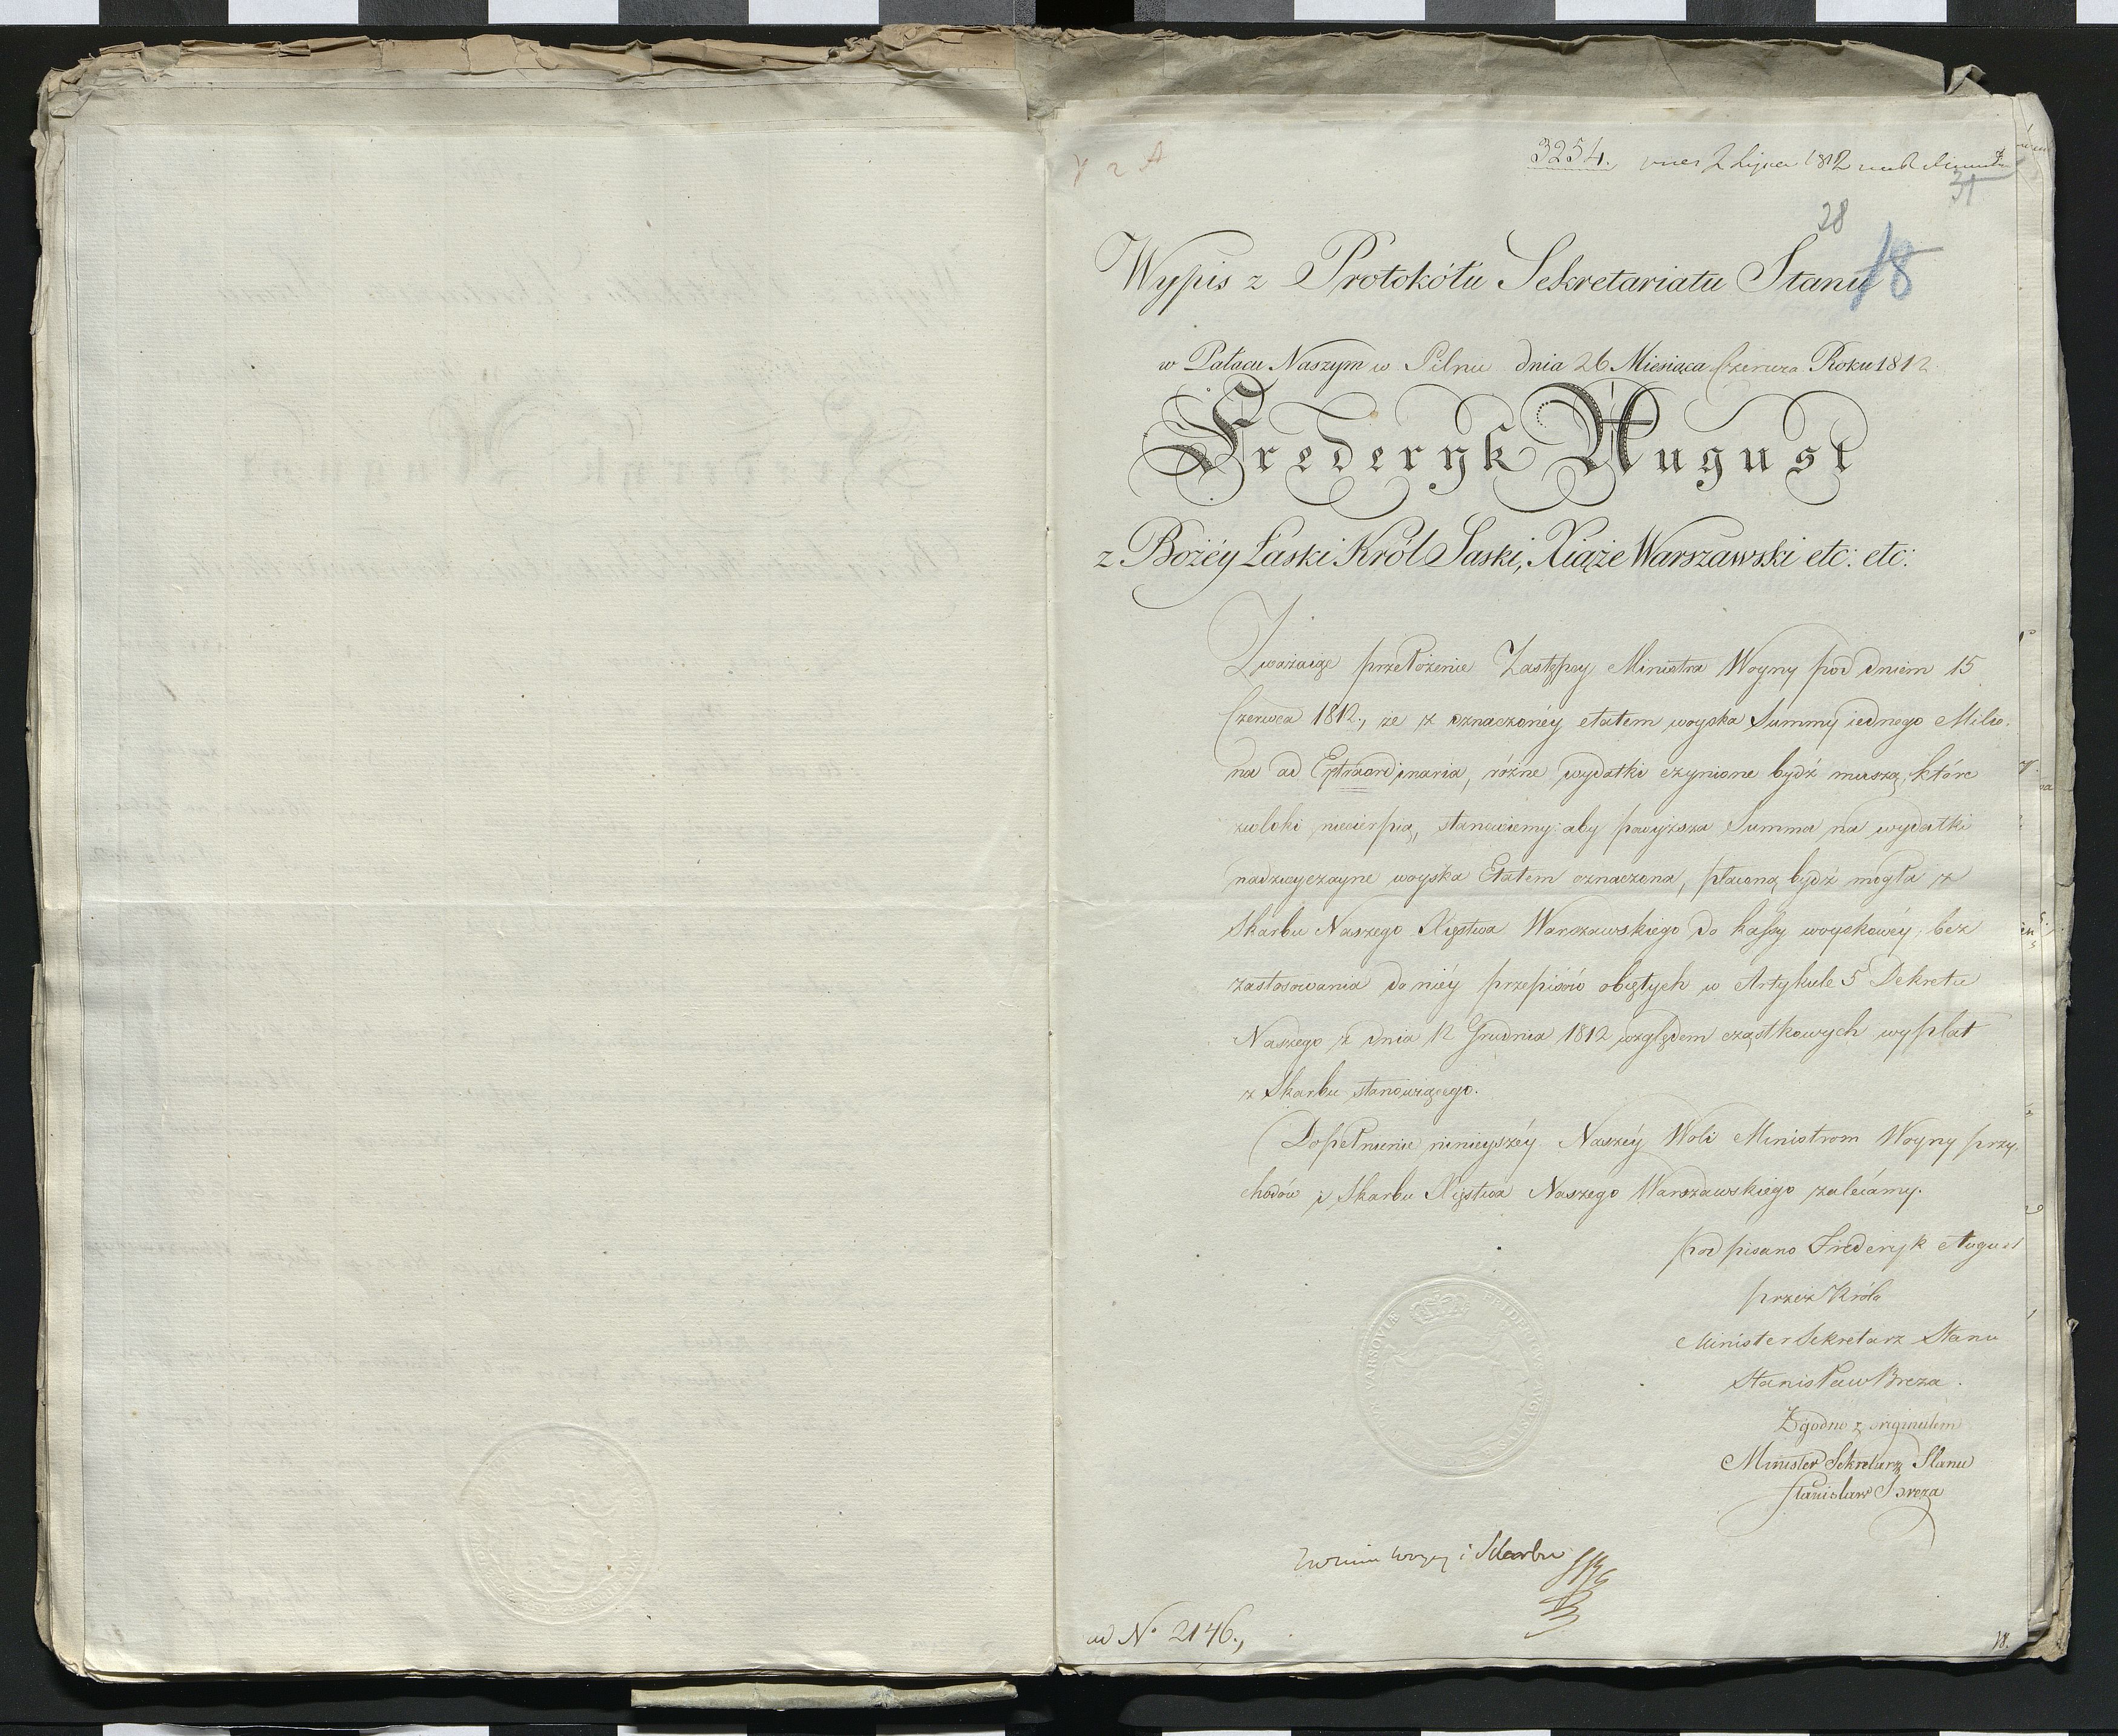 3254. 2 Lipca 1812
31
28
18
Wypis z Protokółu Sekretariatu Stanu
w Pałacu Naszym w Pilnu dnia 26 Miesiąca Czerwca Roku 1812
Frederyk August
z Bożéy Łaski Król Saski, Xiąże Warszawski etc: etc:
Zważaiąc przełożenie Zastępcy Ministra Woyny pod dniem 15
Czerwca 1812., że z oznaczonéy etatem woyska Summy iednego Milio-
na ad Extraordinaria, różne wydatki czynione bydź muszą, które
zwłoki niecierpią, stanowiemy: aby powyższa Summa na wydatki
nadzwyczayne woyska Etatem oznaczona, płaconą bydź mogła z
Skarbu Naszego Xięstwa Warszawskiego do kassy woyskowéy, bez
zastosowania do niéy przepisów obiętych w Artykule 5 Dekretu
Naszego z dnia 12 Grudnia 1812 względem cząstkowych wypłat
z Skarbu stanowiącego.
Dopełnienie ninieyszéy Naszéy Woli Ministrom Woyny przy-
chodów i Skarbu Xięstwa Naszego Warszawskiego zalecamy.
podpisano Frideryk August
przez Króla
Minister Sekretarz Stanu
Stanisław Breza.
Zgodno z originałem
Minister Sekretarz Stanu
Stanisław Breza
i Skarbu
ad No 2146.,
18.